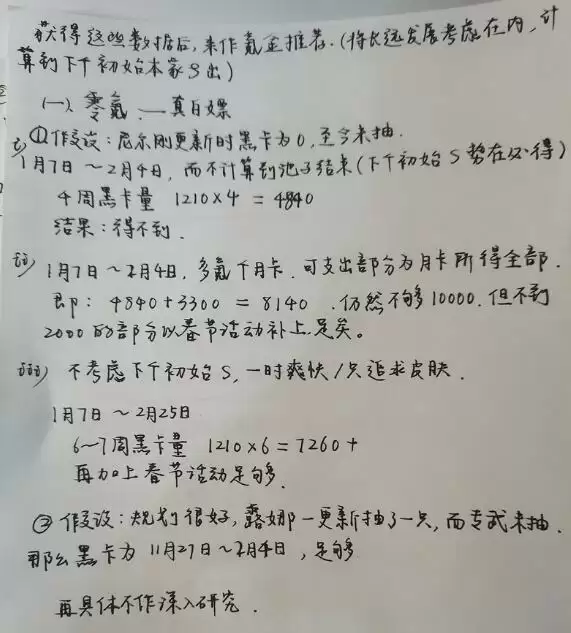 获得这些数据后，来作氪金推荐.（将长远发展考虑在内，计
算到下个初始本家S出）
（一）零氪 — 真白嫖
i) ①作设：尼尔刚更新时黑卡为0，至今未抽.
1月7日～2月4日，而不计算到池子结束（下个初始S势在必得）
4周黑卡量 1210×4 = 4840
结果：得不到.
ii) 1月7日～2月4日，多氪个月卡.可支出部分为月卡所得全部.
即：4840+3300 = 8140 .仍然不够10000.但不到
2000的部分以春节活动补上足矣。
iii) 不考虑下个初始S，一时爽快/只追求皮肤.
1月7日～2月25日
6~7周黑卡量 1210×6=7260+
再加上春节活动足够.
② 作设：规划很好，露娜一更新抽了一只，而专武未抽.
那么黑卡为 11月27日～2月4日，足够
再具体不作深入研究.